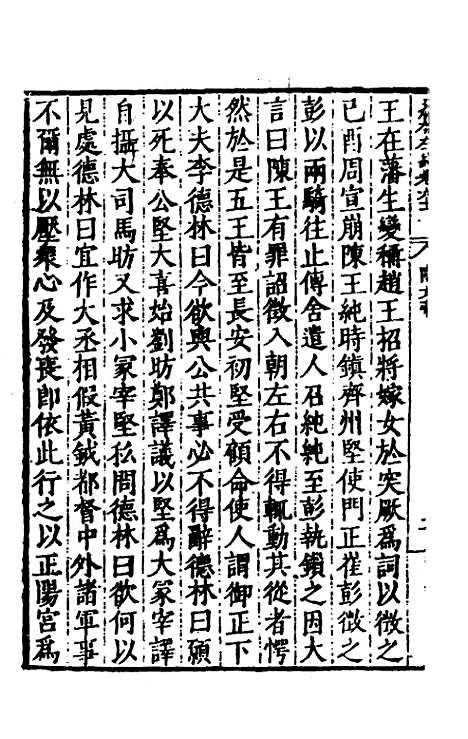 王在藩生變稱趙王招將嫁女於突厥爲詞以徵之
己酉周宣崩陳王純時鎮齊州堅使門正崔彭徵之
彭以兩騎往止傳舍遣人召純純至彭執鎖之因大
言曰陳王有罪詔徵入朝左右不得輒動其從者愕
然於是五王皆至長安初堅受顧命使人謂御正下
大夫李德林曰今欲與公共事必不得辭德林曰願
以死奉公堅大喜始劉昉鄭譯議以堅爲大冢宰譯
自攝大司馬昉又求小冢宰堅私問德林曰欲何以
見處德林曰宜作大丞相假黃鉞都督中外諸軍事
不爾無以壓衆心及發喪即依此行之以正陽宮爲